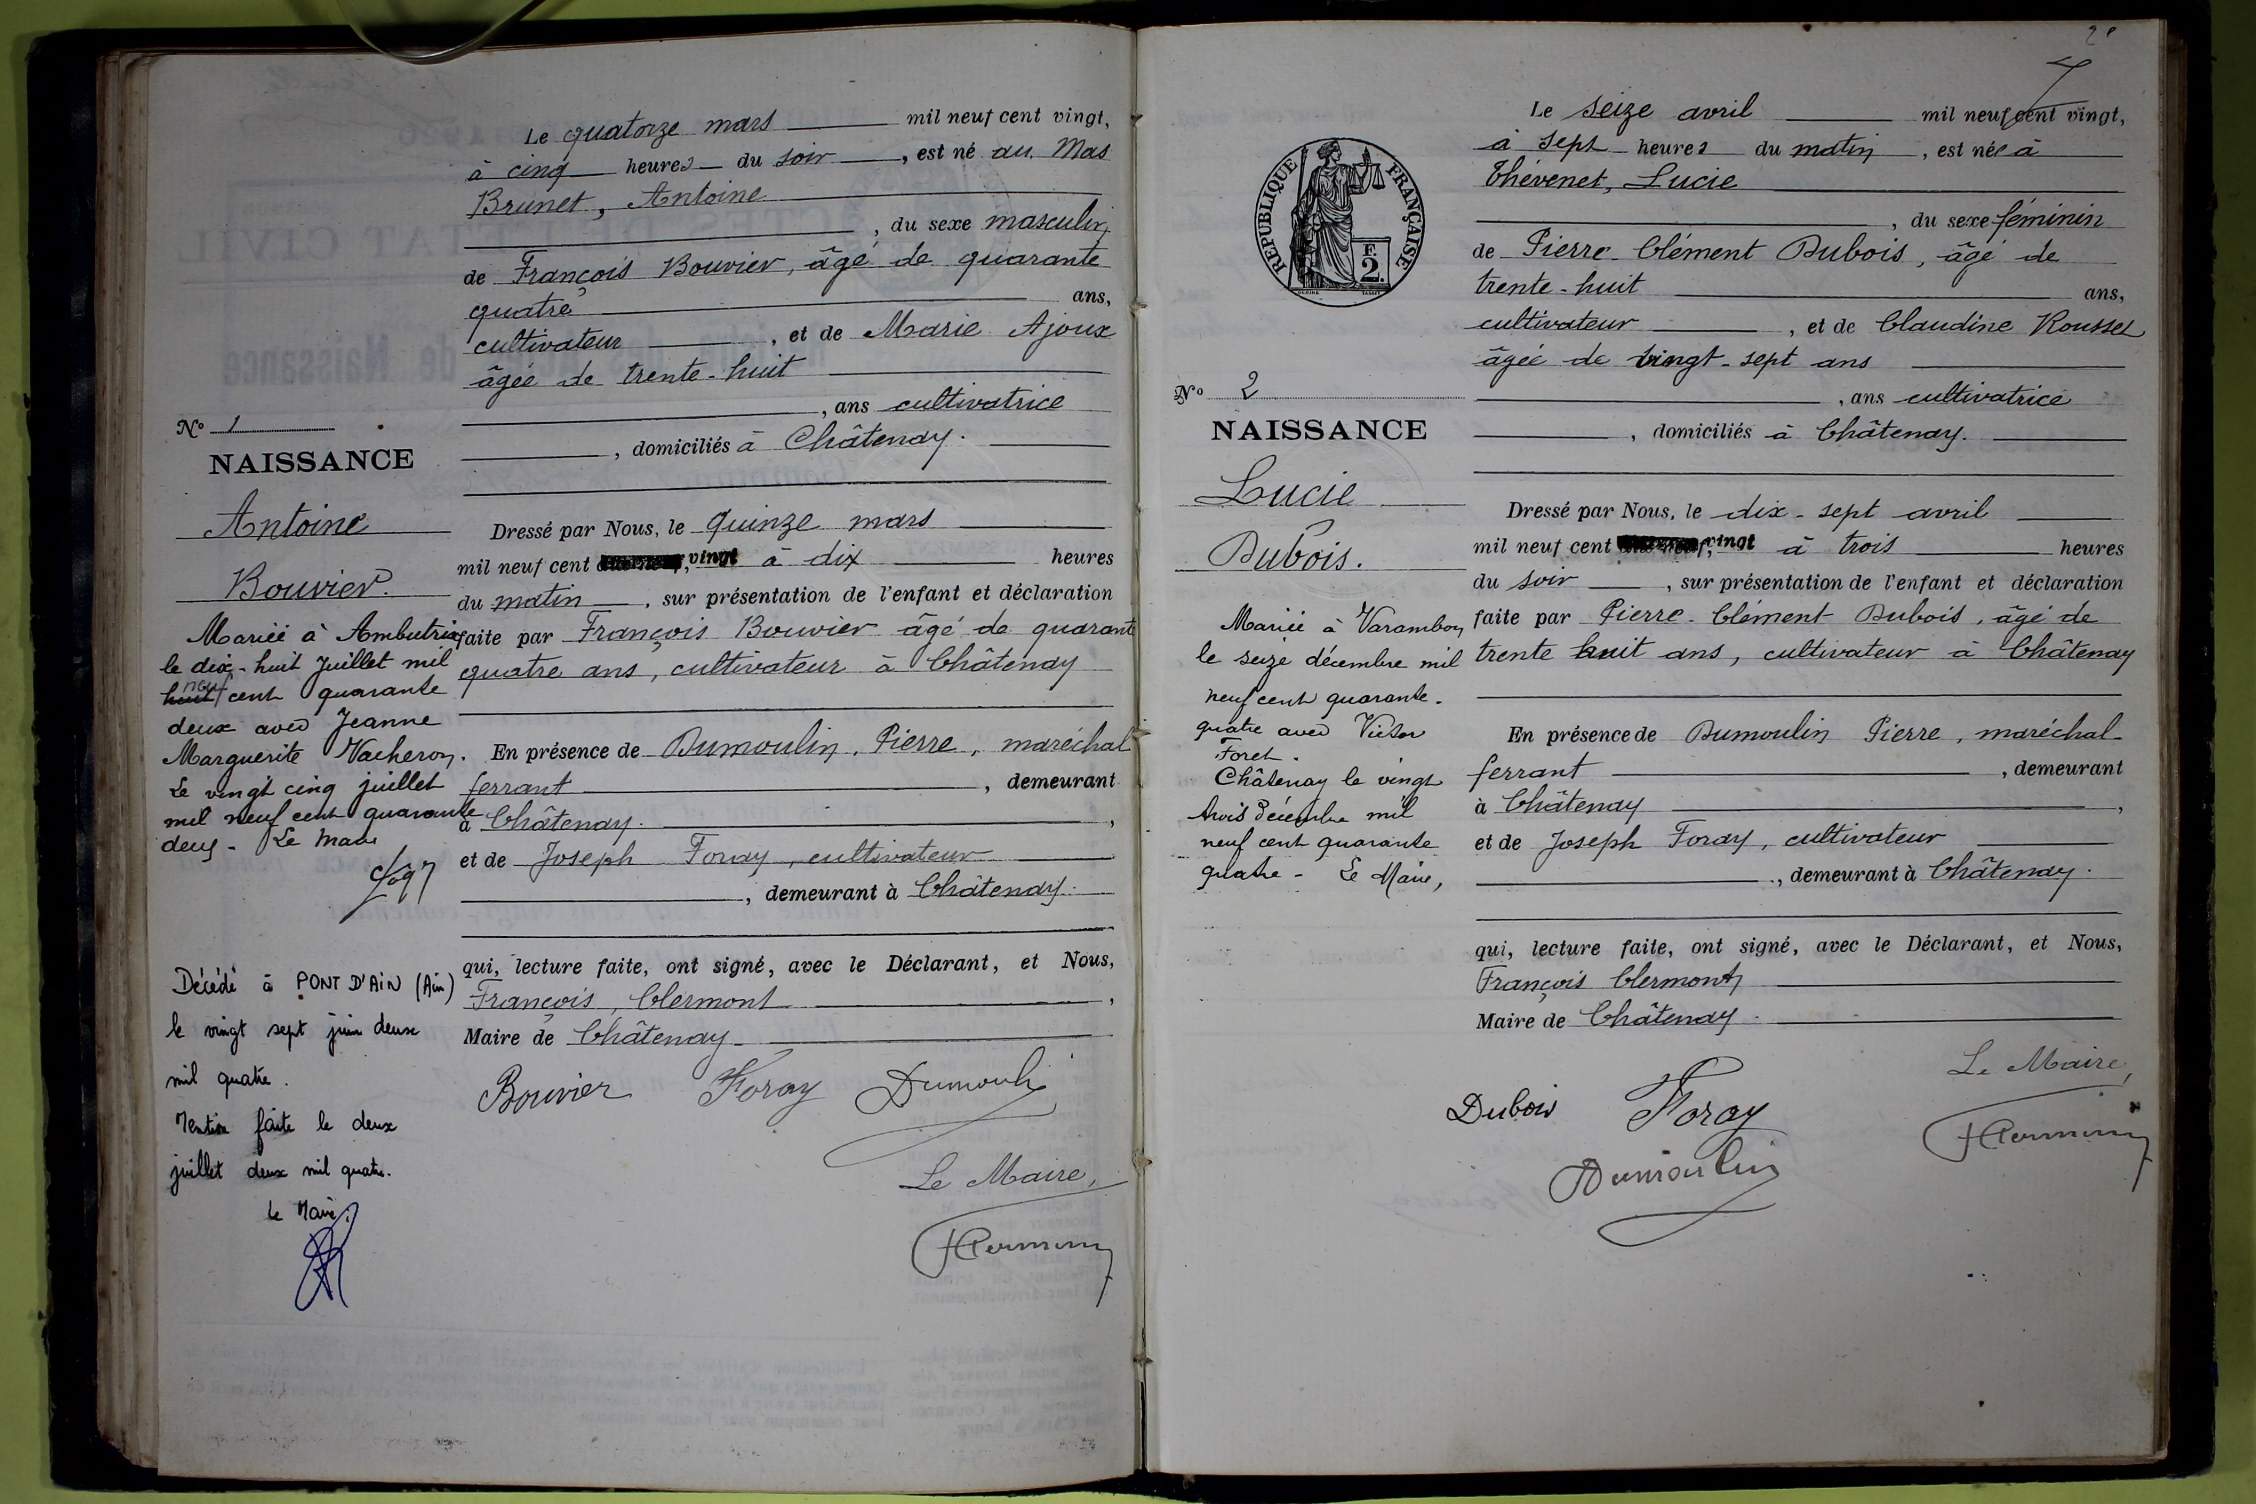 Le quatorze mars mil neuf cent vingt,
à cinq heures du soir, est né au Mas
Brunet, Antoine
, du sexe masculin
de François Bouvier, âgé de quarante
quatre ans,
cultivateur, et de Marie Ajoux
âgée de trente-huit
, ans cultivatrice
, domiciliés à Châtenay.
N° 1
NAISSANCE
Antoine
Bouvier.
Mariée à Ambutrix
le dix-huit Juillet mil
huit neuf cent quarante
deux avec Jeanne
Marguerite Vacheron.
Le vingt cinq juillet
mil neuf cent quarante
deux - Le Maire
Décédé à PONT D'AIN (Ain)
le vingt sept juin deux
mil quatre.
Mention faite le deux
juillet deux mil quatre.
Le Maire.
Dressé par Nous, le quinze mars
mil neuf cent vingt à dix heures
du matin, sur présentation de l'enfant et déclaration
faite par François Bouvier âgé de quarante
quatre ans, cultivateur à Châtenay
En présence de Dumoulin, Pierre, maréchal
ferrant, demeurant
à Châtenay.,
et de Joseph Foray, cultivateur
, demeurant à Châtenay.
qui, lecture faite, ont signé, avec le Déclarant, et Nous,
François, Clermont,
Maire de Châtenay.
Bouvier Foray Dumoulin
Le Maire,
2
Le seize avril mil neuf cent vingt,
à sept heures du matin, est née à
Thévenet, Lucie
, du sexe féminin
de Pierre-Clément Dubois, âgé de
trente-huit ans,
cultivateur, et de Claudine Rousset
âgée de vingt-sept ans
, ans cultivatrice
, domiciliés à Châtenay.
RÉPUBLIQUE FRANÇAISE
F.
2.
N° 2
NAISSANCE
Lucie
Dubois.
Mariée à Varambon
le seize décembre mil
neuf cent quarante-
quatre avec Victor
Foret.
Châtenay le vingt
trois Décembre mil
neuf cent quarante
quatre - Le Maire,
Dressé par Nous, le dix-sept avril
mil neuf cent vingt à trois heures
du soir, sur présentation de l'enfant et déclaration
faite par Pierre-Clément Dubois, âgé de
trente huit ans, cultivateur à Châtenay
En présence de Dumoulin Pierre, maréchal-
ferrant, demeurant
à Châtenay,
et de Joseph Foray, cultivateur
, demeurant à Châtenay.
qui, lecture faite, ont signé, avec le Déclarant, et Nous,
François Clermont
Maire de Châtenay.
Le Maire,
Dubois Foray
Dumoulin